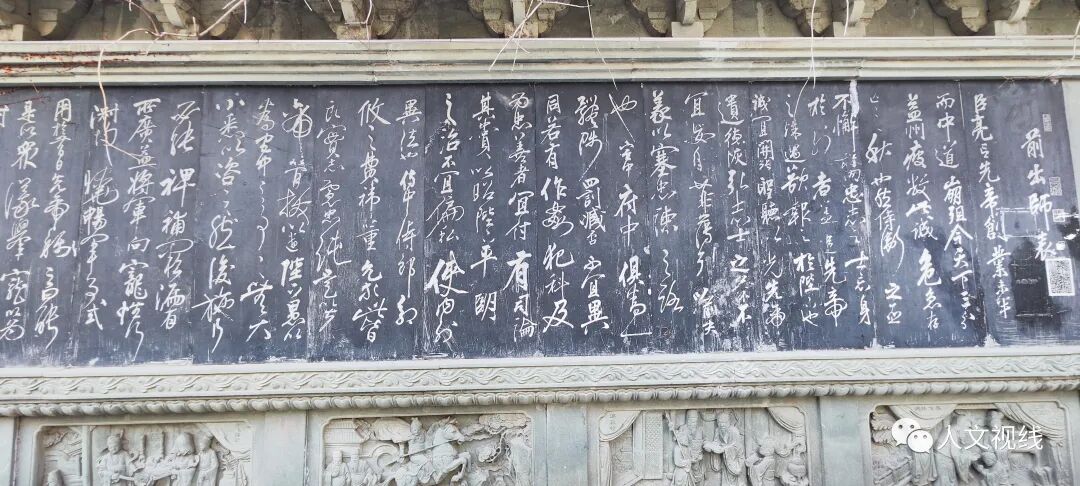 前出師表
臣亮言先帝創業未半
而中道崩殂今天下三分
益州疲敝此誠危急存
亡之秋也然侍衛之臣
不懈於內忠志之士忘身
於外者蓋追先帝
之殊遇欲報之於陛下也
誠宜開張聖聽以光先帝
遺德恢弘志士之氣不
宜妄自菲薄引喻失
義以塞忠諫之路
也宮中府中俱為一
體陟罰臧否不宜異
同若有作奸犯科及
為忠善者宜付有司論
其刑賞以昭陛下平明
之治不宜偏私使內外
異法也侍中侍郎郭
攸之費禕董允等此皆
良實志慮忠純是以先
帝簡拔以遺陛下愚以
為宮中之事事無大
小悉以咨之然後施行
必能裨補闕漏有
所廣益將軍向寵性行
淑均曉暢軍事試
用於昔日先帝稱之曰能
是以眾議舉寵為
人文视线